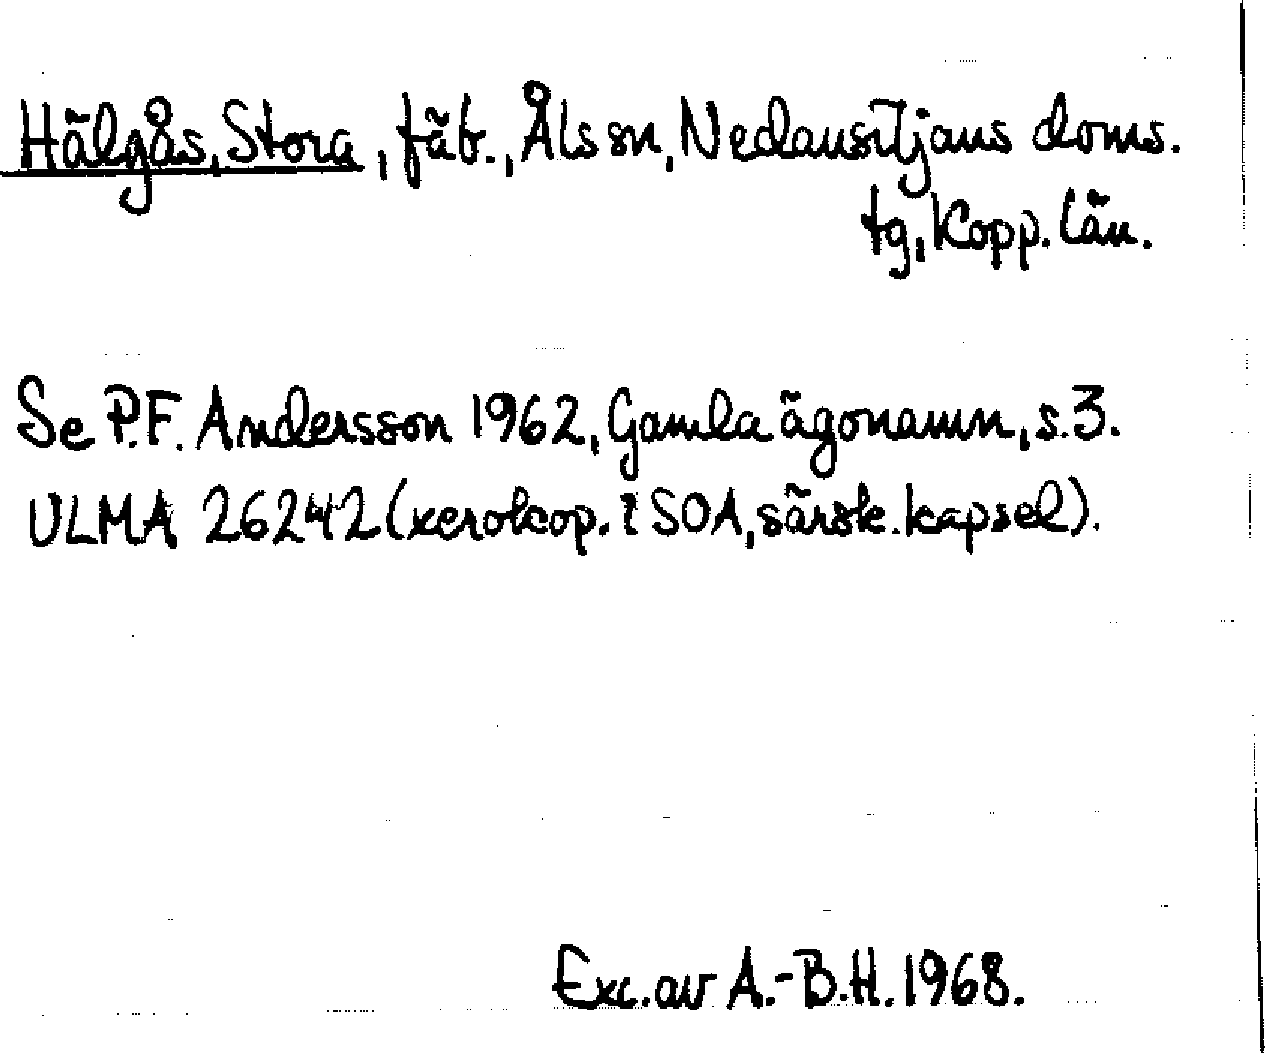 Hälgås, Stora, fäb., Åls sn, Nedansiljans doms.
tg, Kopp. län.
Se P.F. Andersson 1962, Gamla ägonamn, s.3.
ULMA 26242 (xerokop. i SOA, särsk. kapsel).
Exc. av A.-B.H. 1968.